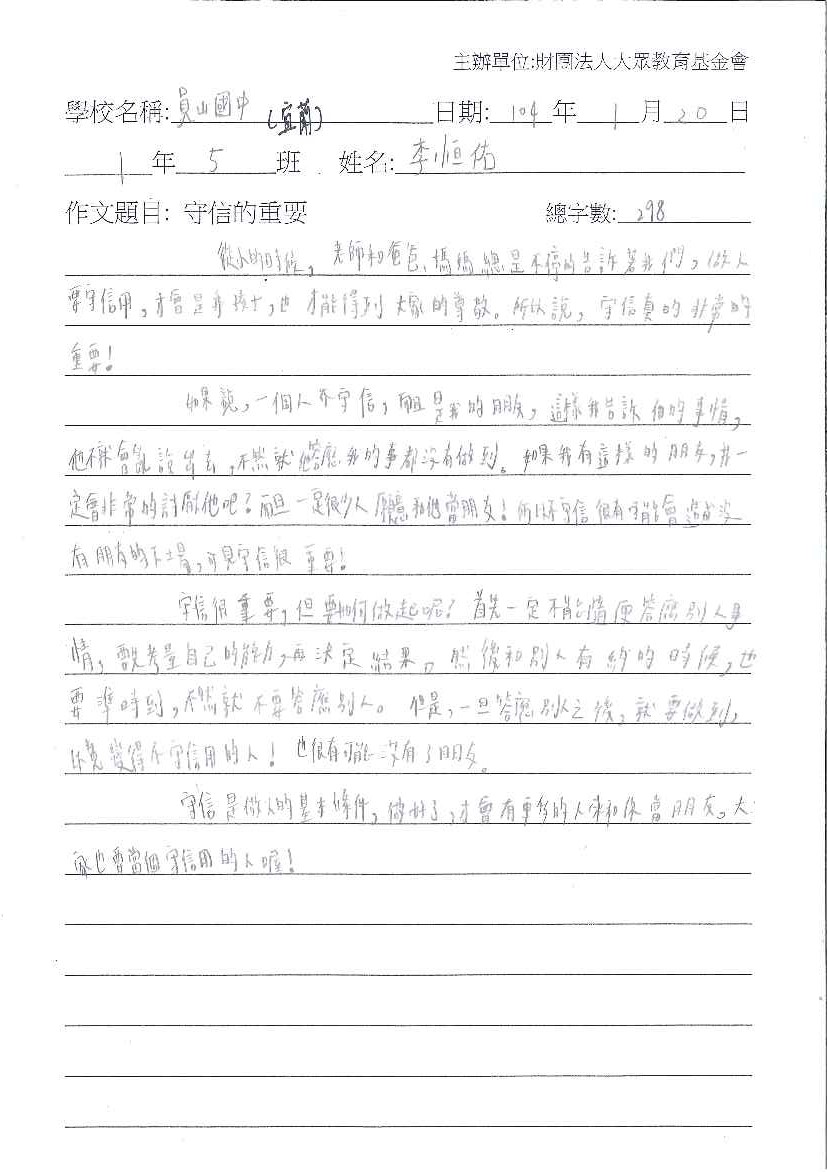 主辦單位:財團法人大眾教育基金會
學校名稱: 員山國中 (宜蘭) 日期: 104 年 1 月 20 日
1 年 5 班 姓名: 李恒佑
作文題目: 守信的重要 總字數: 298
從小的時候，老師和爸爸、媽媽總是不停的告訴著我們，做人
要守信用，才會是好孩子，也才能得到大家的尊敬。所以說，守信真的非常的
重要！
如果說，一個人不守信，而且是我的朋友，這樣我告訴他的事情，
他不就會亂說出去，不然就他答應我的事都沒有做到。如果我有這樣的朋友，我一
定會非常的討厭他吧？而且一定很少人願意和他當朋友！所以不守信很有可能會造成沒
有朋友的下場，可見守信很重要！
守信很重要，但要如何做起呢？首先一定不能隨便答應別人事
情，要先考量自己的能力，再決定結果，然後和別人有約的時候，也
要準時到，不然就不要答應別人。但是，一旦答應別人之後，就要做到，
不免變得不守信用的人！也很有可能沒有了朋友。
守信是做人的基本條件，做好了，才會有更多的人來和你當朋友，大
家也要當個守信用的人喔！